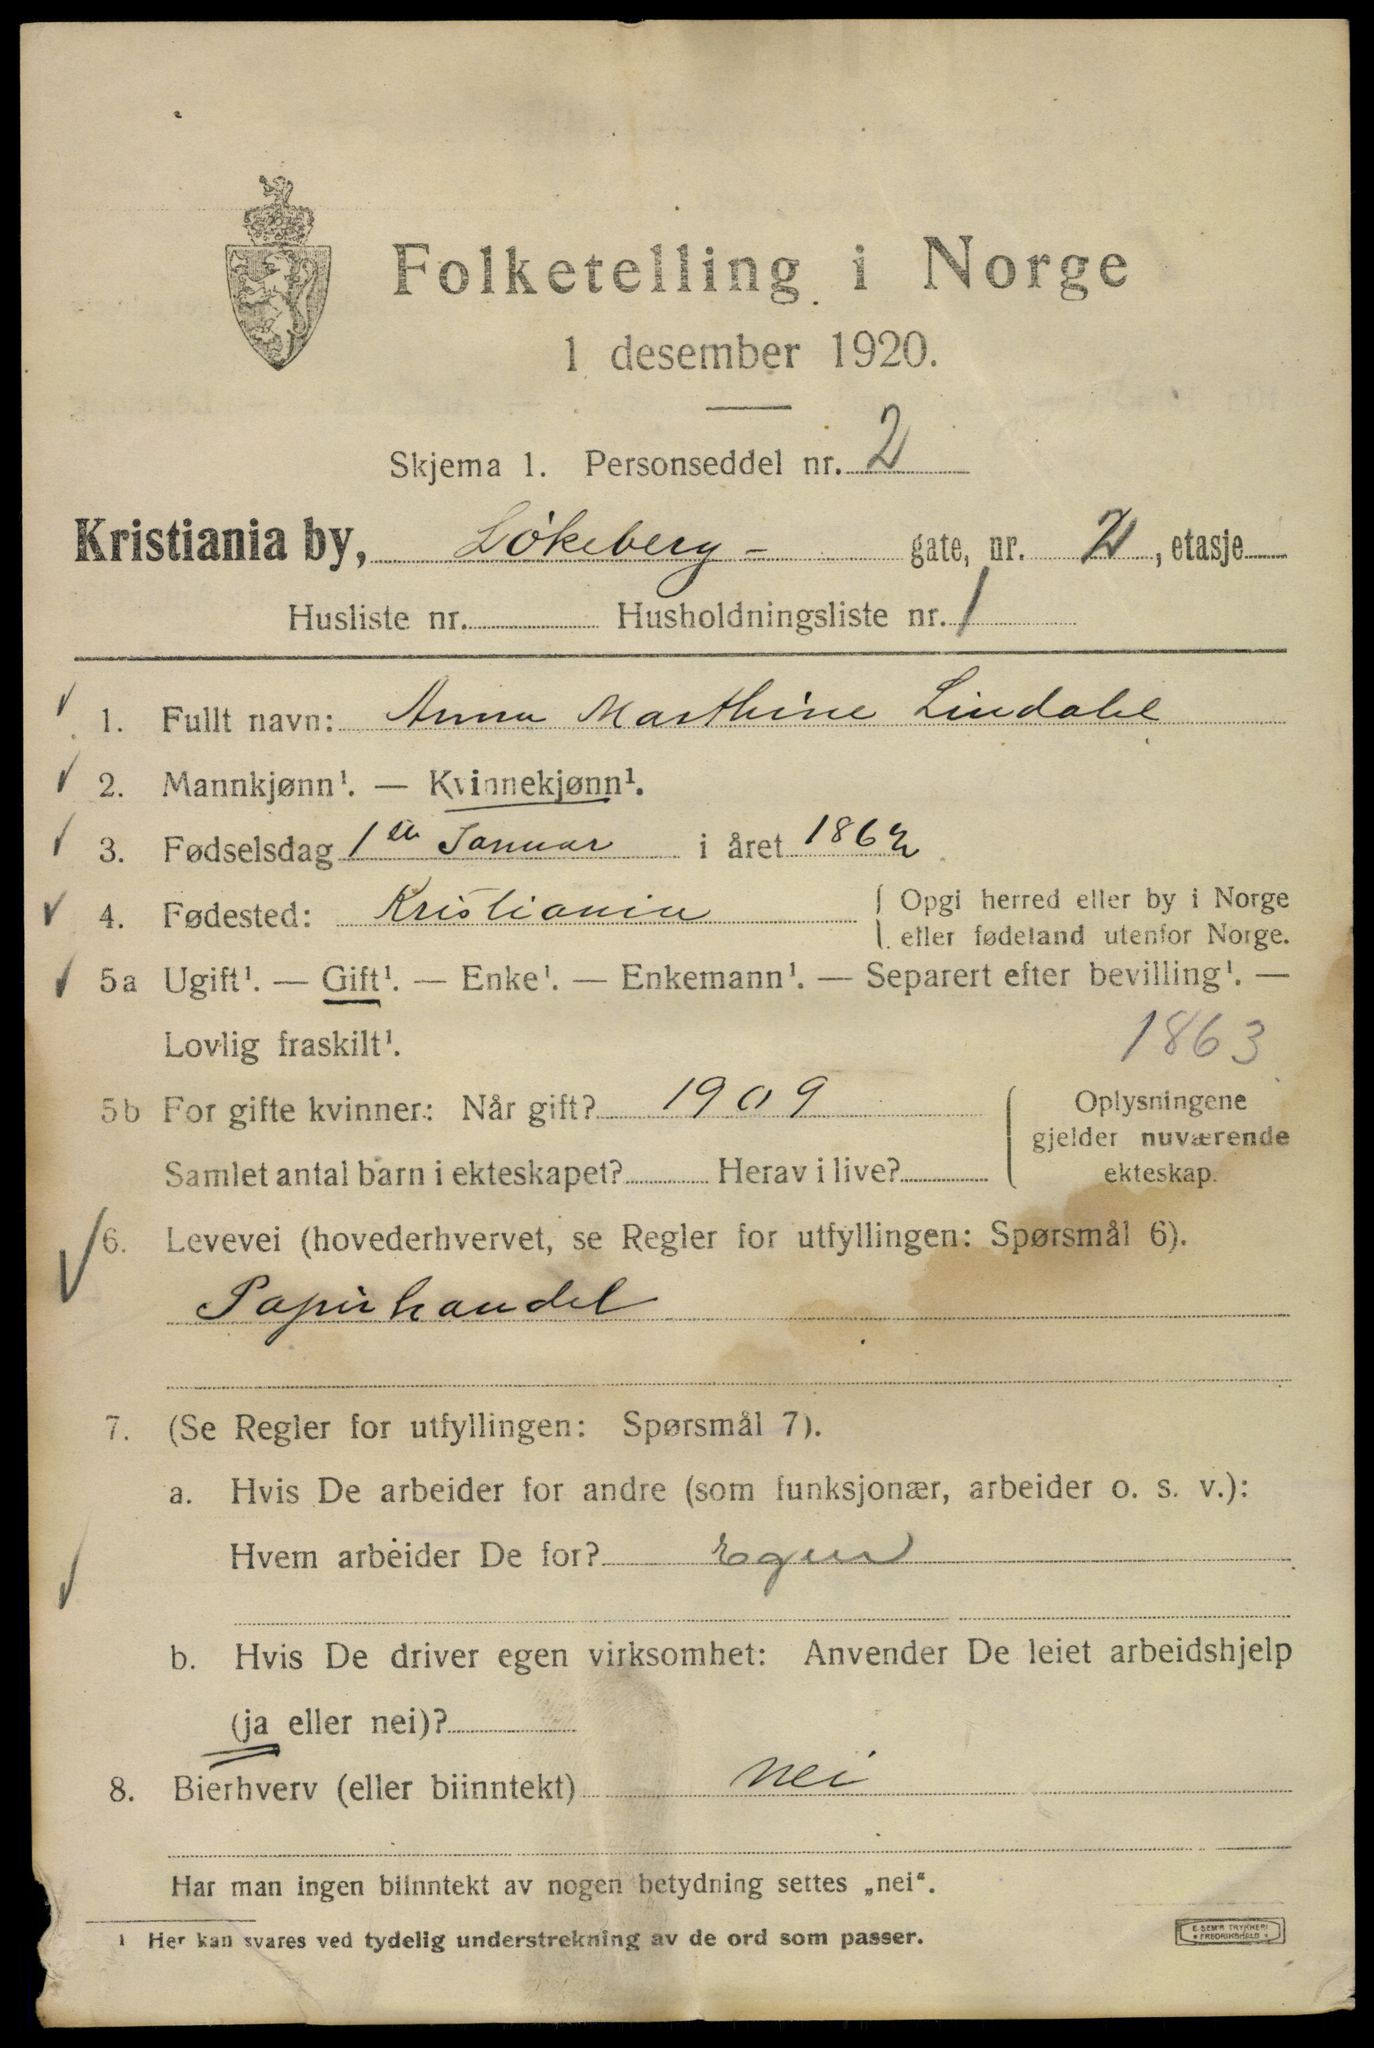 Folketelling i Norge
1 desember 1920.
Skjema 1. Personseddel nr. 2
Kristiania by, Lökeberg- gate, nr. 2, etasje
Husliste nr. Husholdningsliste nr. 1
1. Fullt navn: Anna Marthine Lindahl
2. Mannkjønn¹. — Kvinnekjønn¹.
3. Fødselsdag 1ste Januar i året 1863
4. Fødested: Kristiania { Opgi herred eller by i Norge
eller fødeland utenfor Norge.
5a Ugift¹. — Gift¹. — Enke¹. — Enkemann¹. — Separert efter bevilling¹. —
Lovlig fraskilt¹. 1863
5b For gifte kvinner: Når gift? 1909 { Oplysningene
gjelder nuværende
Samlet antal barn i ekteskapet? Herav i live? ekteskap.
6. Levevei (hovederhvervet, se Regler for utfyllingen: Spørsmål 6).
Papirhandel
7. (Se Regler for utfyllingen: Spørsmål 7).
a. Hvis De arbeider for andre (som funksjonær, arbeider o. s. v.):
Hvem arbeider De for? Egen
b. Hvis De driver egen virksomhet: Anvender De leiet arbeidshjelp
(ja eller nei)?
8. Bierhverv (eller biinntekt) nei
Har man ingen biinntekt av nogen betydning settes „nei“.
¹ Her kan svares ved tydelig understrekning av de ord som passer.
E. SEM'S TRYKKERI
• FREDRIKSHALD •